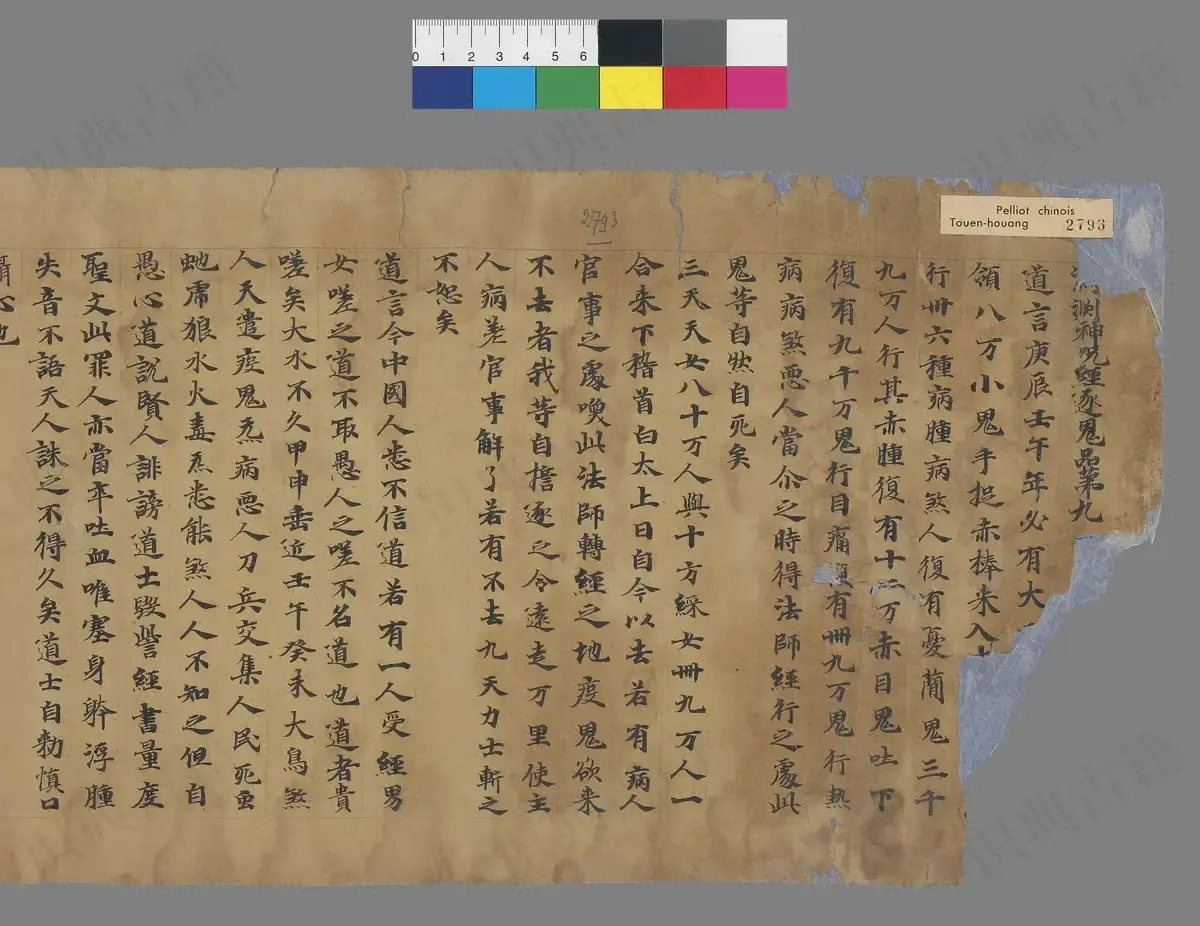 淵神呪經逐鬼品第九
道言庚辰壬午年必有大
領八万小鬼手捉赤棒来入
行卌六種病腫病煞人復有憂蕳鬼三千
九万人行其赤腫復有十二万赤目鬼吐下
復有九千万鬼行目痛復有卌九万鬼行熱
病病煞惡人當尒之時得法師經行之處此
鬼等自然自死矣
三天天女八十万人與十方綵女卌九万人一
合来下稽首白太上曰自今以去若有病人
官事之處喚此法師轉經之地疫鬼欲来
不去者我等自擔逐之令遠走万里使主
人病差官事解了若有不去九天力士斬之
不恕矣
道言今中國人悉不信道若有一人受經男
女嗟之道不取愚人之嗟不名道也道者貴
嗟矣大水不久甲申垂近壬午癸未大鳥煞
人天遣疫鬼炁病惡人刀兵交集人民死虫
虵虎狼水火毒炁悉能煞人人不知之但自
愚心道說賢人誹謗道士毀訾經書量度
聖文此罪人亦當卒吐血唯塞身躰浮腫
失音不語天人誅之不得久矣道士自勑慎口
攝心也
2793
Pelliot chinois
Touen-houang 2793
0 1 2 3 4 5 6
识典古籍